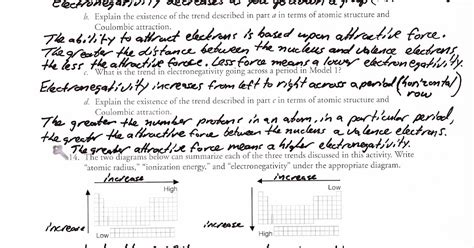 Electronegativity decreases as you go down a group (
b. Explain the existence of the trend described in part a in terms of atomic structure and
Coulombic attraction.
The ability to attract electrons is based upon attractive force.
The greater the distance between the nucleus and valence electrons,
the less the attractive force. Less force means a lower electronegativity.
c. What is the trend in electronegativity going across a period in Model 1?
Electronegativity increases from left to right across a period (horizontal)
row
d. Explain the existence of the trend described in part c in terms of atomic structure and
Coulombic attraction.
The greater the number protons in an atom, in a particular period,
the greater the attractive force between the nucleus & valence electrons.
The greater attractive force means a higher electronegativity.
14. The two diagrams below can summarize each of the three trends discussed in this activity. Write
"atomic radius," "ionization energy," and "electronegativity" under the appropriate diagram.
increase
increase
High
High
increase
increase
Low
Low